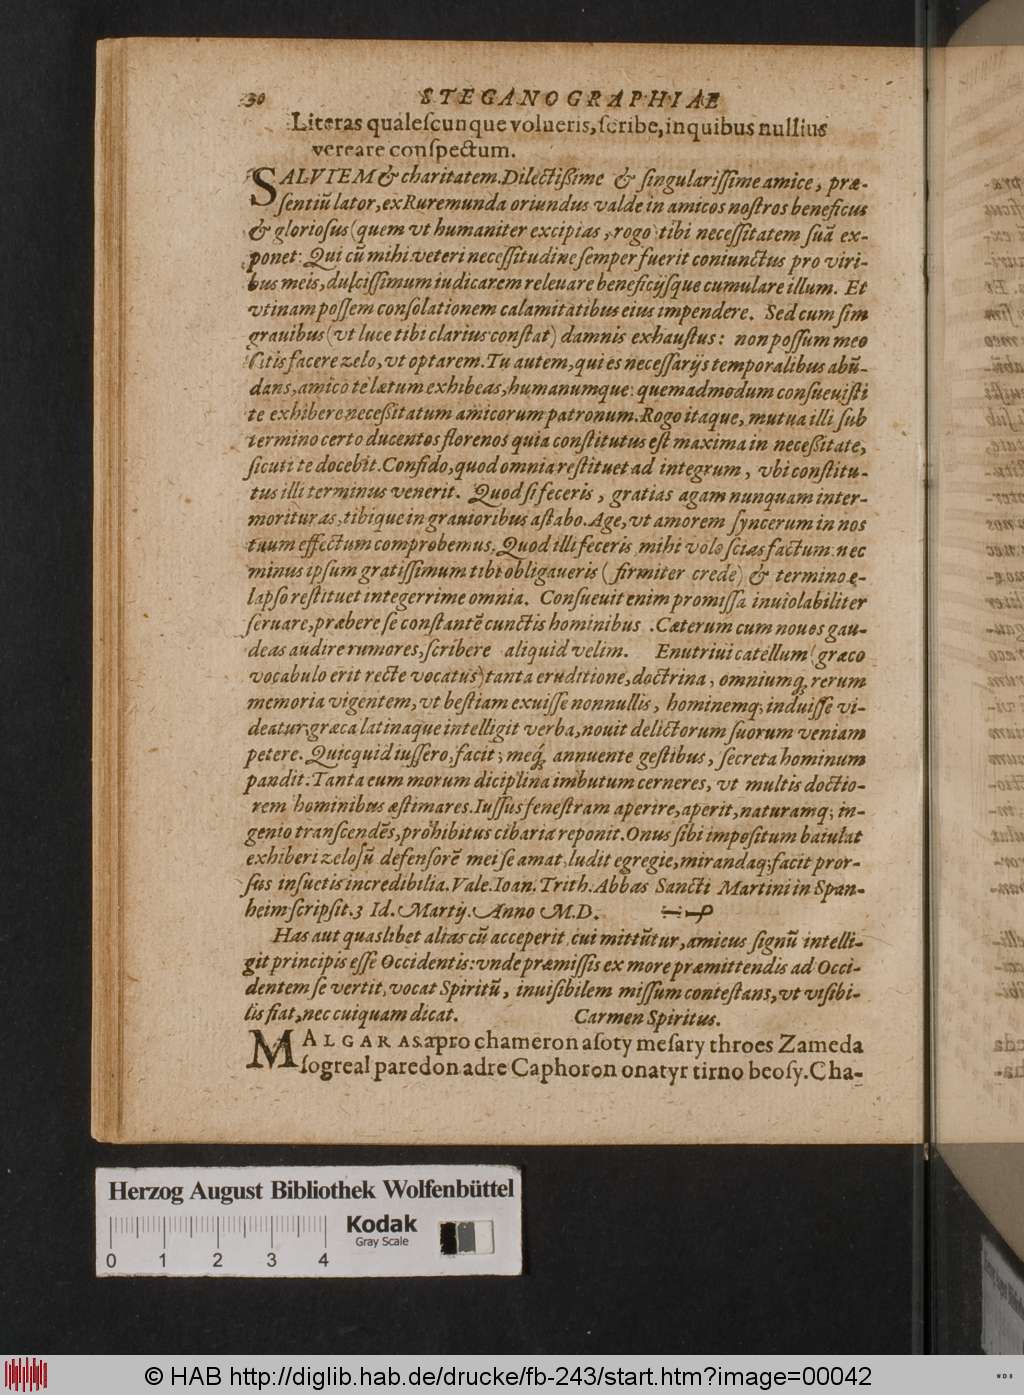 30 STEGANOGRAPHIAE
Literas qualescunque volueris, scribe, in quibus nullius
vereare conspectum.
SALVTEM & charitatem. Dilectißime & singularissime amice, præ-
sentiũ lator, ex Ruremunda oriundus valde in amicos nostros beneficus
& gloriosus (quem vt humaniter excipias, rogo) tibi necessitatem suã ex-
ponet: Qui cũ mihi veteri necessitudine semper fuerit coniunctus pro viri-
bus meis, dulcissimum iudicarem releuare beneficijsque cumulare illum. Et
vtinam possem consolationem calamitatibus eius impendere. Sed cum sim
grauibus (vt luce tibi clarius constat) damnis exhaustus: non possum meo
satis facere zelo, vt optarem. Tu autem, qui es necessarijs temporalibus abũ-
dans, amico te lætum exhibeas, humanumque: quemadmodum consueuisti
te exhibere neceßitatum amicorum patronum. Rogo itaque, mutua illi sub
termino certo ducentos florenos quia constitutus est maxima in neceßitate,
sicuti te docebit. Confido, quod omnia restituet ad integrum, vbi constitu-
tus illi terminus venerit. Quod si feceris, gratias agam nunquam inter-
morituras, tibique in grauioribus astabo. Age, vt amorem syncerum in nos
tuum effectum comprobemus. Quod illi feceris mihi volo scias factum: nec
minus ipsum gratissimum tibi obligaueris (firmiter crede) & termino e-
lapso restituet integerrime omnia. Consueuit enim promissa inuiolabiliter
seruare, præbere se constantẽ cunctis hominibus. Cæterum cum nouos gau-
deas audire rumores, scribere aliquid velim. Enutriui catellum (græco
vocabulo erit recte vocatus) tanta eruditione, doctrina, omniumq; rerum
memoria vigentem, vt bestiam exuisse nonnullis, hominemq; induisse vi-
deatur: græca latinaque intelligit verba, nouit delictorum suorum veniam
petere. Quicquid iussero, facit; meq́; annuente gestibus, secreta hominum
pandit: Tanta eum morum diciplina imbutum cerneres, vt multis doctio-
rem hominibus æstimares. Iussus fenestram aperire, aperit, naturamq; in-
genio transcendẽs, prohibitus cibaria reponit. Onus sibi impositum baiulat
exhiberi zelosũ defensorẽ mei se amat, ludit egregie, mirandaq; facit pror-
sus insuetis incredibilia. Vale. Ioan. Trith. Abbas Sancti Martini in Span-
heim scripsit. 3 Id. Martij. Anno M.D.
Has aut quaslibet alias cũ acceperit cui mittũtur, amicus signũ intelli-
git principis esse Occidentis: vnde præmissis ex more præmittendis ad Occi-
dentem se vertit, vocat Spiritũ, inuisibilem missum contestans, vt visibi-
lis fiat, nec cuiquam dicat. Carmen Spiritus.
MALGARAS apro chameron asoty mesary throes Zameda
sogreal paredon adre Caphoron onatyr tirno beosy. Cha-
Herzog August Bibliothek Wolfenbüttel
0 1 2 3 4
Kodak
Gray Scale
© HAB http://diglib.hab.de/drucke/fb-243/start.htm?image=00042